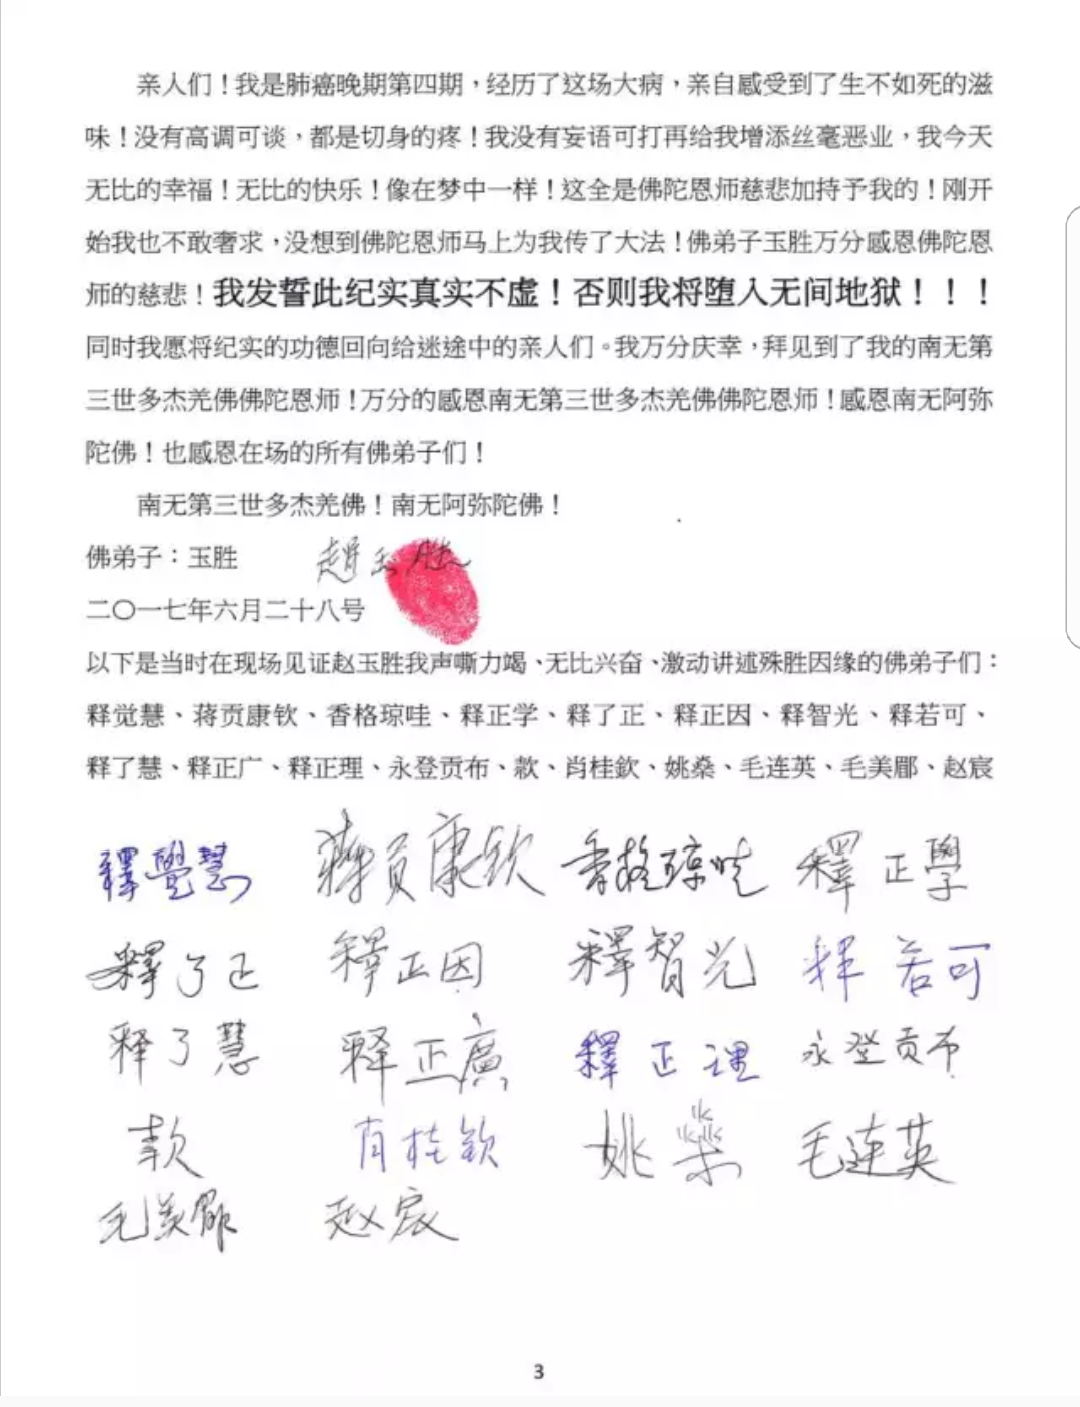 亲人们！我是肺癌晚期第四期，经历了这场大病，亲自感受到了生不如死的滋
味！没有高调可谈，都是切身的疼！我没有妄语可打再给我增添丝毫恶业，我今天
无比的幸福！无比的快乐！像在梦中一样！这全是佛陀恩师慈悲加持予我的！刚开
始我也不敢奢求，没想到佛陀恩师马上为我传了大法！佛弟子玉胜万分感恩佛陀恩
师的慈悲！我发誓此纪实真实不虚！否则我将堕入无间地狱！！！
同时我愿将纪实的功德回向给迷途中的亲人们。我万分庆幸，拜见到了我的南无第
三世多杰羌佛佛陀恩师！万分的感恩南无第三世多杰羌佛佛陀恩师！感恩南无阿弥
陀佛！也感恩在场的所有佛弟子们！
南无第三世多杰羌佛！南无阿弥陀佛！
佛弟子：玉胜 趙玉胜
二〇一七年六月二十八号
以下是当时在现场见证赵玉胜我声嘶力竭、无比兴奋、激动讲述殊胜因缘的佛弟子们：
释觉慧、蒋贡康钦、香格琼哇、释正学、释了正、释正因、释智光、释若可、
释了慧、释正广、释正理、永登贡布、款、肖桂欽、姚燊、毛连英、毛美郿、赵宸
釋覺慧 蔣貢康欽 香格琼哇 釋正學
釋了正 釋正因 釋智光 释若可
释了慧 释正廣 釋正理 永登贡布
款 肖桂钦 姚燊 毛连英
毛美郿 赵宸
3